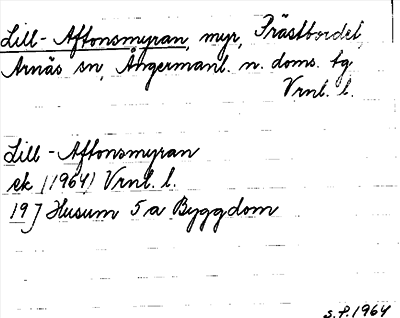 Lill-Aftonsmyran, myr, Prästbordet,
Arnäs sn, Ångermanl. n. doms. tg
Vrnl. l.
Lill-Aftonsmyran
ek (1964) Vrnl. l.
19 J Husum 5 a Byggdom
S.P. 1964